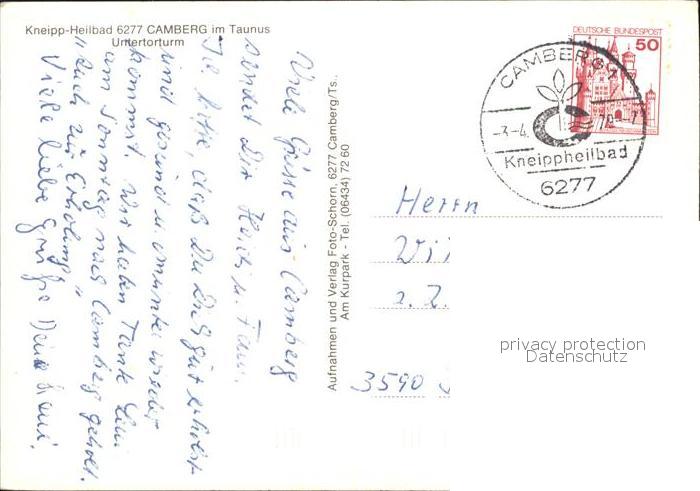 Kneipp-Heilbad 6277 CAMBERG im Taunus
Untertorturm
Viele Grüsse aus Camberg
sendet Dir Heidi u. Fam.
Ich hoffe, daß Du Dich gut erholst
und gesund u. munter wieder
kommst. Wir haben Tante
am Sonntag nach Camberg geholt.
"Auch zur Erholung"
Viele liebe Grüße Deine
Aufnahmen und Verlag Foto-Schorn, 6277 Camberg/Ts.
Am Kurpark - Tel. (06434) 72 60
DEUTSCHE BUNDESPOST
50
CAMBERG 1
-3.-4.
Kneippheilbad
6277
Herrn
z. Z.
3590
privacy protection
Datenschutz